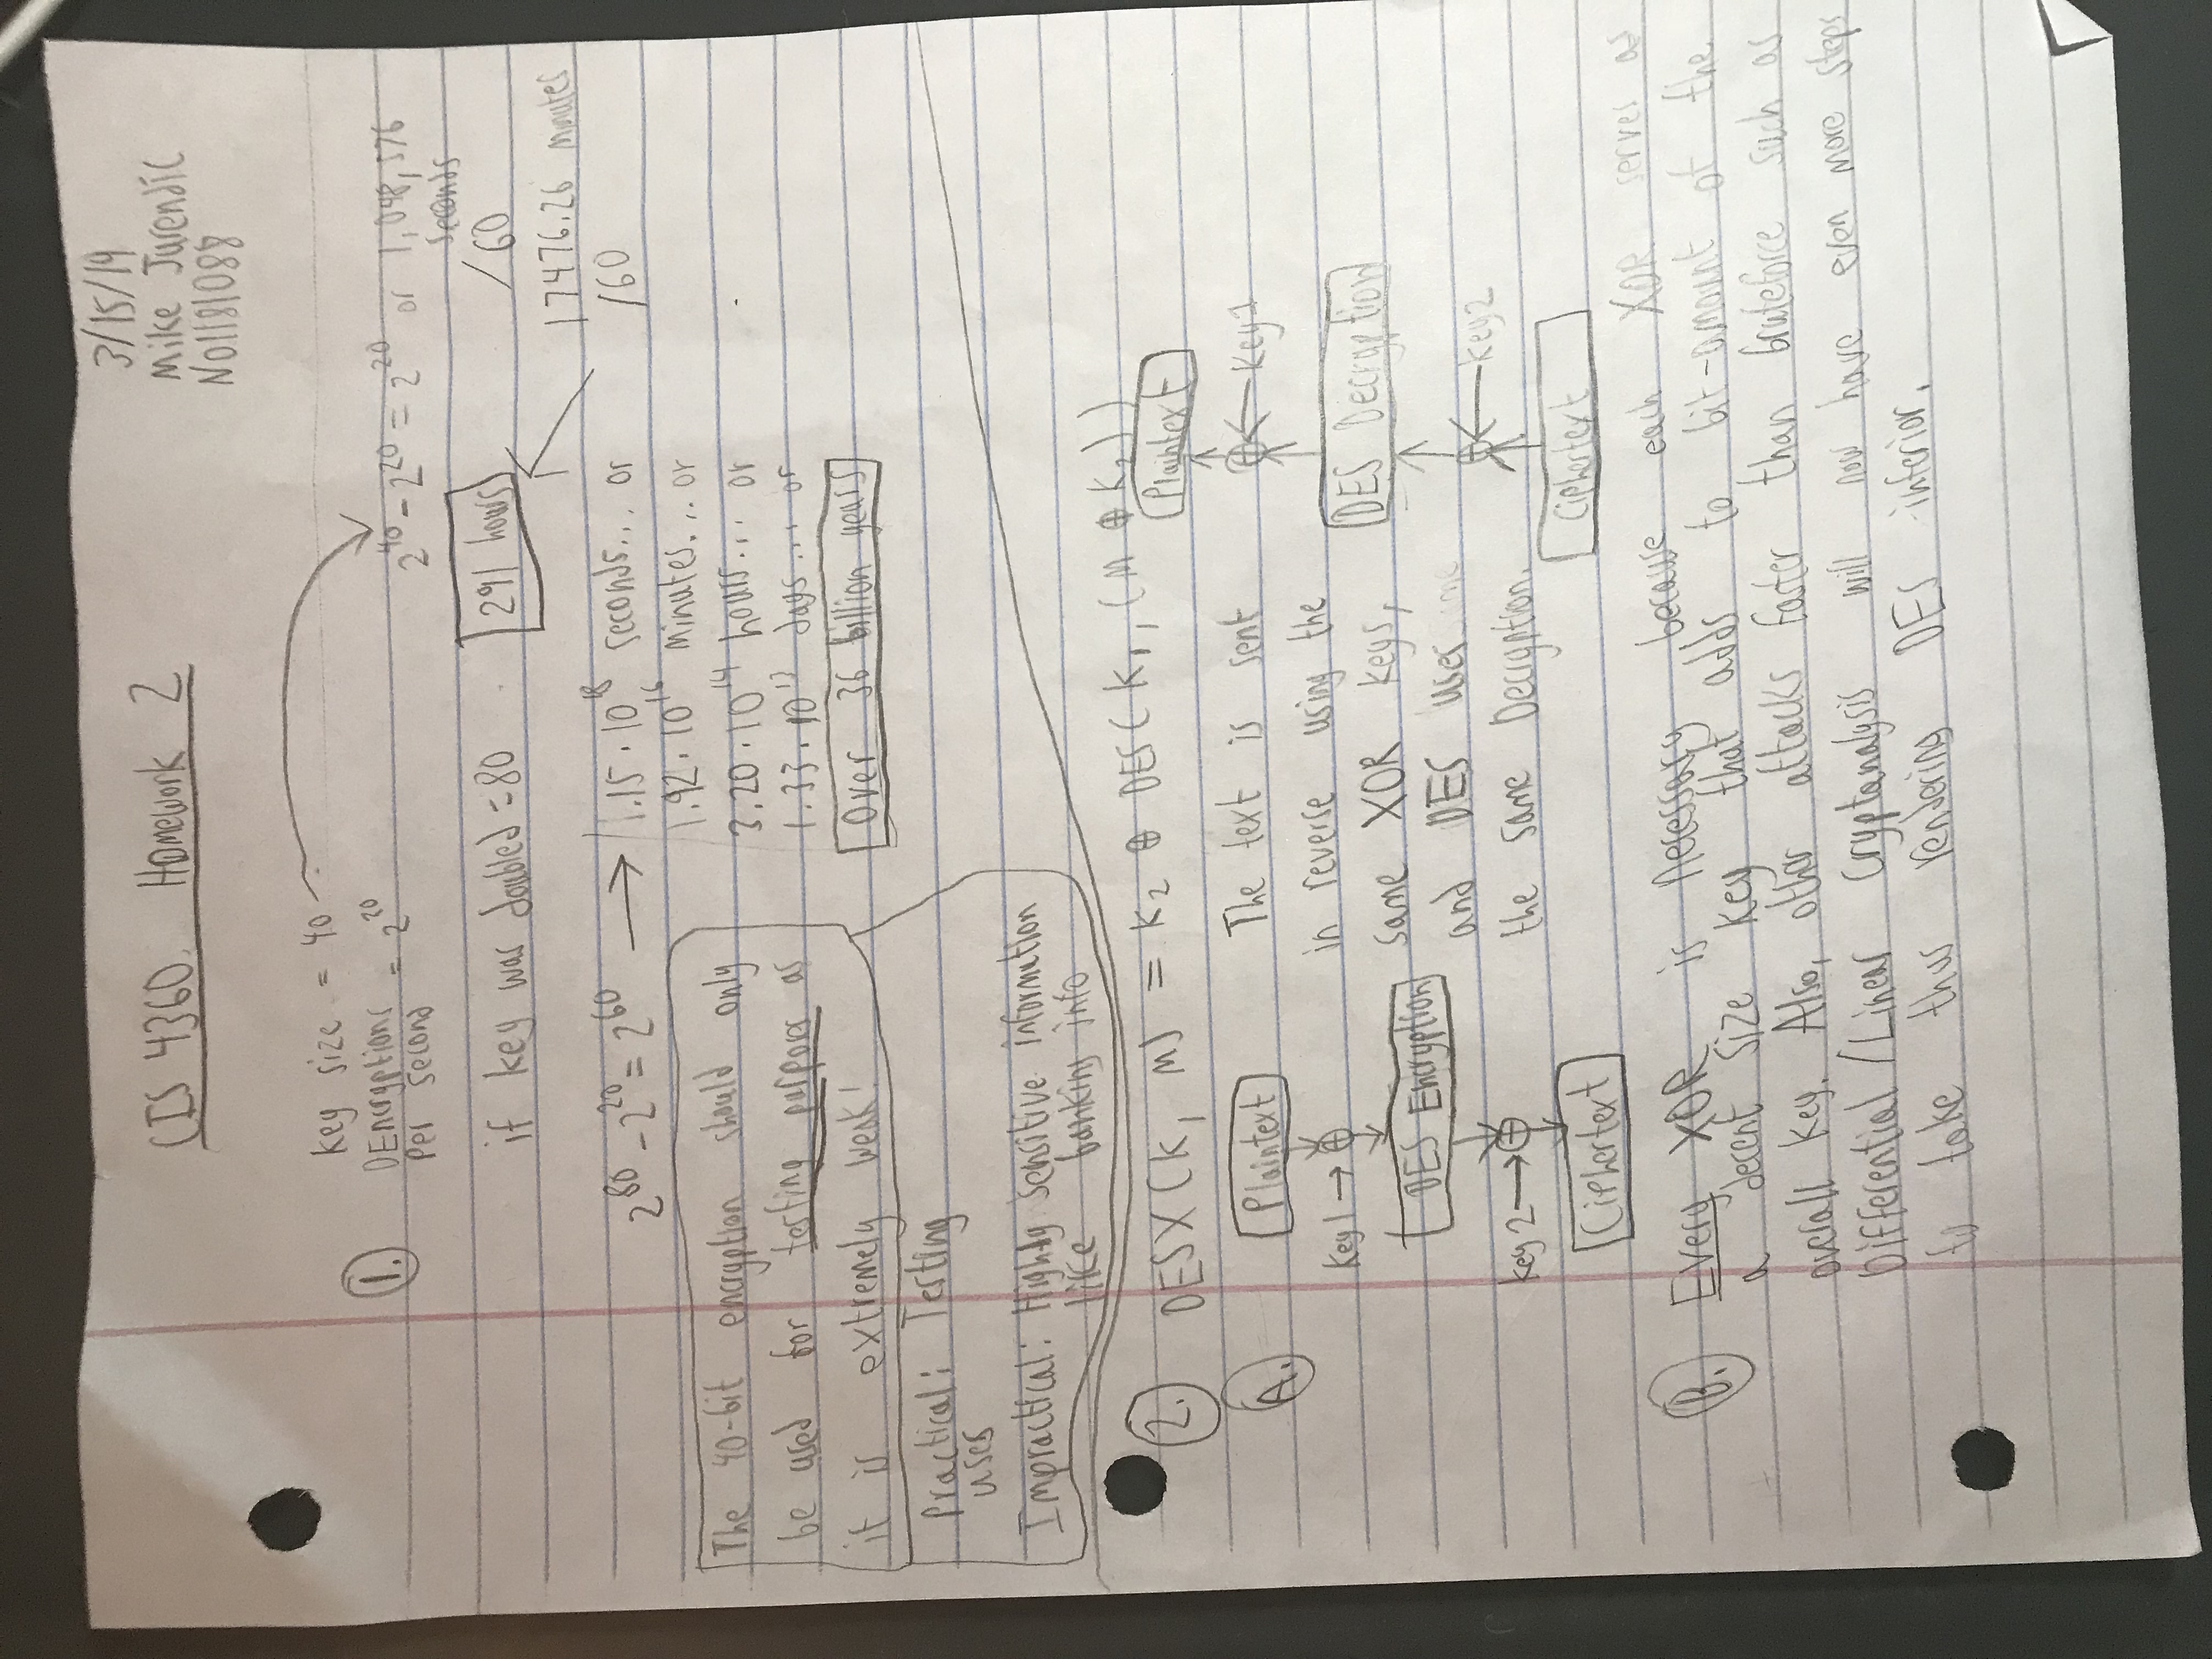 3/15/19
CIS 4360. Homework 2
Mike Jurendic
N01181088
1.
Key size = 40
DEncryptions Per second = 2^20
2^40 - 2^20 = 2^20 or 1,048,576 seconds
/60
17476.26 minutes
/60
291 hours
if key was doubled = 80
2^80 - 2^20 = 2^60 → 1.15 · 10^18 seconds... or
1.92 · 10^16 minutes... or
3.20 · 10^14 hours... or
1.33 · 10^13 days... or
Over 36 billion years
The 40-bit encryption should only
be used for testing purposes as
it is extremely weak!
Practical: Testing
uses
Impractical: Highly sensitive information
like banking info
2. DESX(K, M) = K2 ⊕ DES(K1, (M ⊕ K2))
A.
Plaintext
Key1 → ⊕
DES Encryption
Key 2 → ⊕
Ciphertext
The text is sent
in reverse using the
same XOR keys,
and DES uses
the same Decryption.
Plaintext
⊕ ← Key1
DES Decryption
⊕ ← Key2
Ciphertext
B. Every XOR is necessary because each XOR serves as
a decent size key that adds to bit-amount of the
overall key. Also, other attacks faster than bruteforce such as
Differential/Linear Cryptanalysis will now have even more steps
to take thus rendering DES inferior.